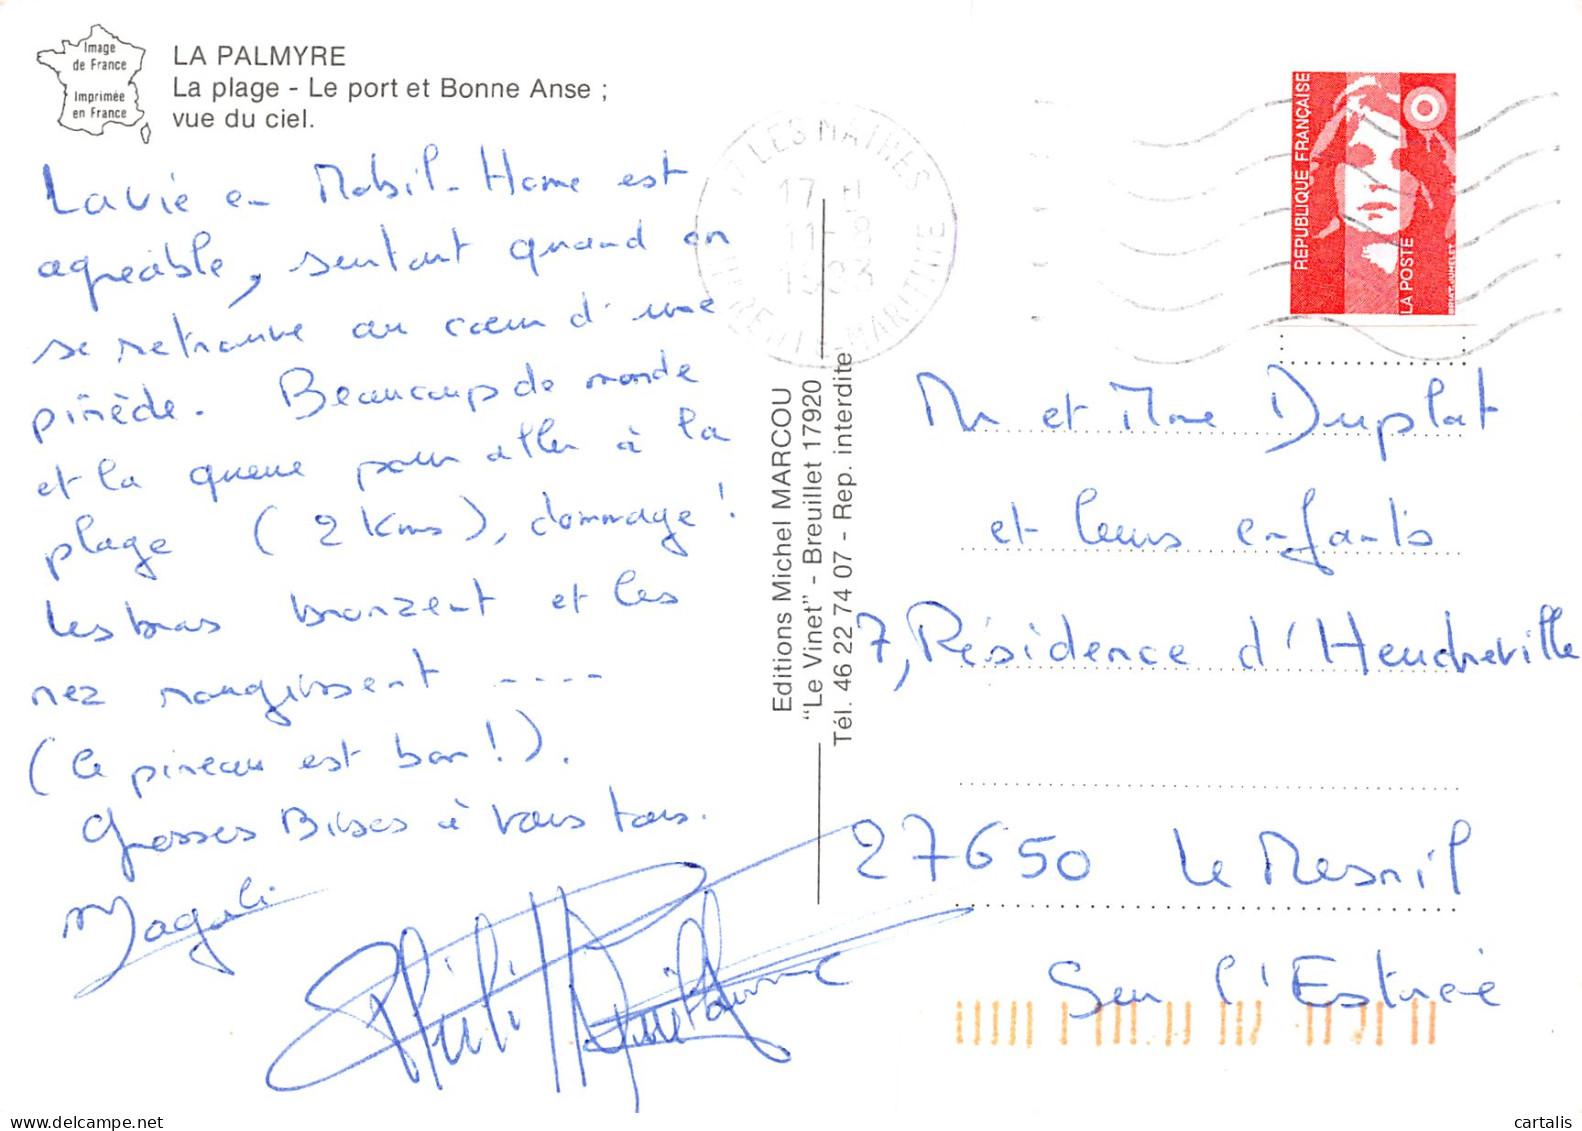 Image
de France
Imprimée
en France
LA PALMYRE
La plage - Le port et Bonne Anse ;
vue du ciel.
La vie en Mobil-Home est
agréable, surtout quand on
se retrouve au cœur d'une
pinède. Beaucoup de monde
et la queue pour aller à la
plage (2 Kms), dommage !
Les bras bronzent et les
nez rougissent ----
(Le pineau est bon !).
Grosses Bises à vous tous.
Magali
Editions Michel MARCOU
"Le Vinet" - Breuillet 17920
Tél. 46 22 74 07 - Rep. interdite
17 LES MATHES
17 H
11-8
1993
MARITIME
REPUBLIQUE FRANÇAISE
LA POSTE
BRIAT. JUMELET
Mr et Mme Duplat
et leurs enfants
7, Résidence d'Heucheville
27650 Le Mesnil
Sur l'Estrée
cartalis